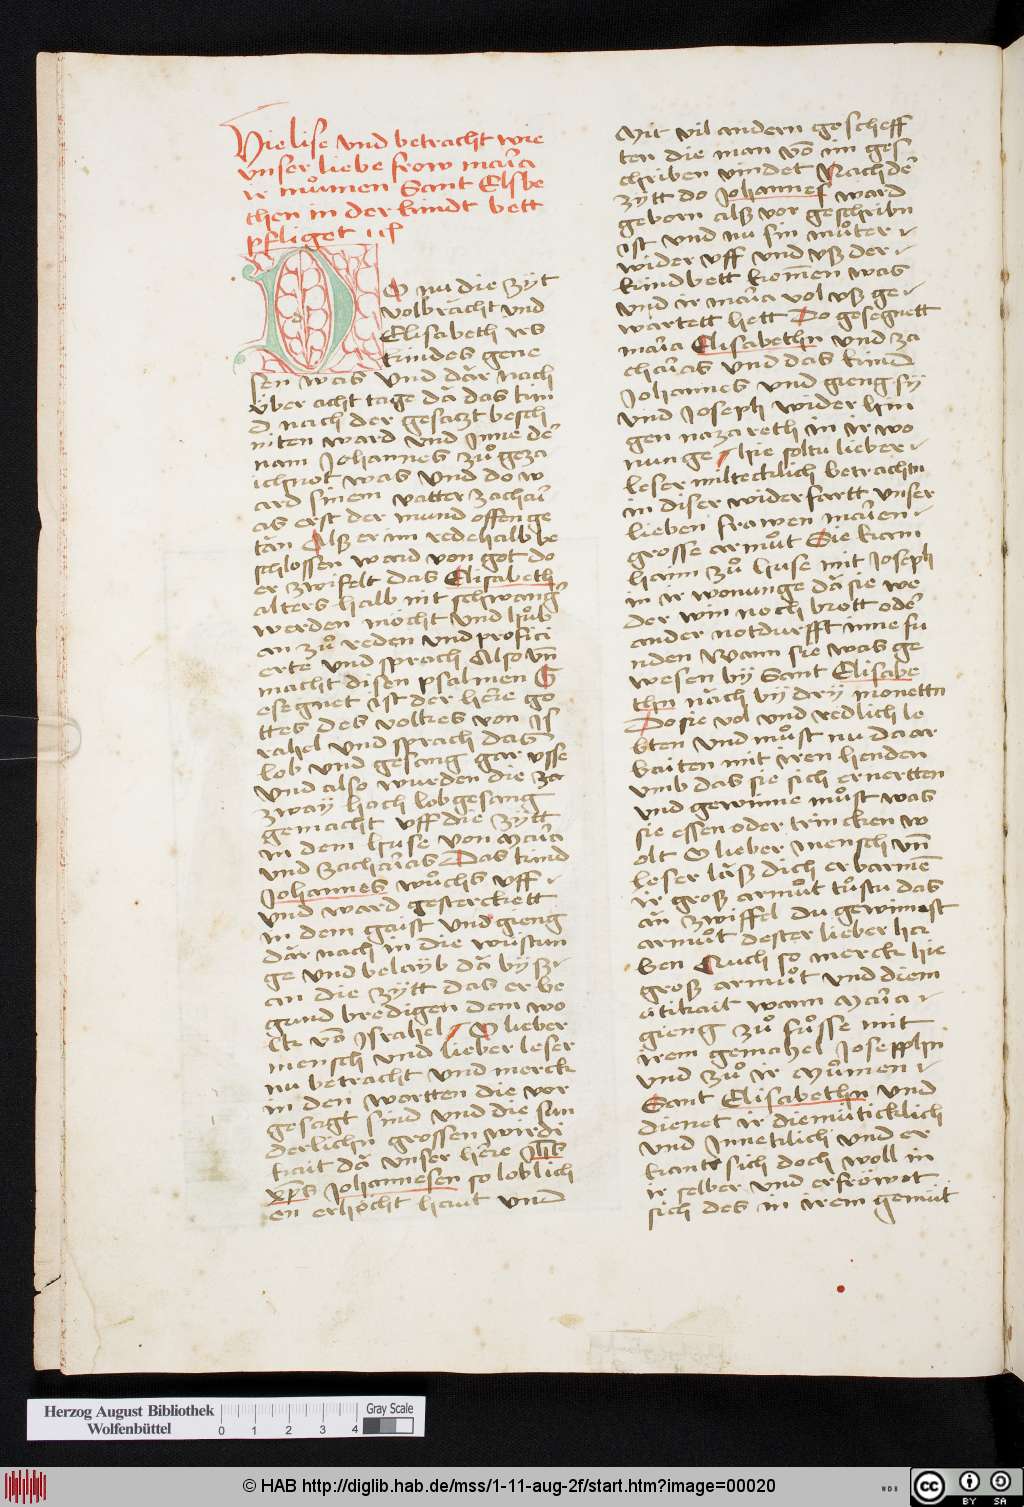 Hie lise vnd betracht wie
vnser liebe frow maria
ir můmen Sant Elsbe
then in der kindt bett
pfliget
DO nu die zÿt
volbrăcht vnd
Elisabeth irs
kindes gene
sen was vnd dăr nach
über acht tage dă das kin
d nach der gesatzt besch
niten ward vnd Inne dē
nam Johannes zů geza
ichnot was vnd do w
ard sinem vatter zachaī
as erst der mund offen ge
tăn Als er im rede halb be
schlossen ward von got do
er zwifelt das Elisabeth
alters halb nit schwang̃
werden möcht vnd hůb
an zů reden vnd profici
erte vnd sprach Also vn̄
macht disen psalmen G
esegnet ist der her̃e go
ttes des volkes von Is
rahel vnd sprach das
lob vnd gesang gar vsse
vnd also wurden die za
zwaÿ hoch lobgesang
gemacht vff die zÿtt
in dem huse von Maria
vnd zacharias Das kind
Johannes wůchs vff
vnd ward gesterckett
in dem gaist vnd gieng
dăr nach in die wüstun
ge vnd belayb dă bÿsz
an die zÿtt das er be
gund bredigen dem vo
lck vō Israhel O lieber
mensch vnd lieber leser
nu betracht vnd merck
in den wortten die vor
gesagt sind vnd die sun
derlichn grossen wirdi
kait dă vnser her̃e Jhs̄
xp̄s Johannesen so loblich
en erhöcht haut vnd
Mit vil andern gescheff
ten die man vō im ges
chriben vindet Nach dē
zÿtt do Johannes ward
geborn alsz vor geschribn
ist vnd nu sin můter
wider vff vnd vsz der
kindbett kom̄en was
vnd ir maria vol vsz ge
wartett hett Do gesegnett
maria Elisabethn vnd za
charias vnd das kind
Johannes vnd gieng sÿ
vnd Joseph wider hin
gen nazareth in ir wo
nunge hie soltu lieber
leser miltecklich betrachtn
in diser widerfartt vnser
lieben frawen marien
grosse armůt Sie kam
haim zů huse mit Joseph
in ir wonunge dă sie we
der win noch brott odē
ander notdurfft inne fu
nden Wann sie was ge
wesen bÿ Sant Elisabe
thn năch bÿ drÿ monettn
Do sie vol vnd redlich le
bten vnd můst nu da ar
baiten mit iren henden
vmb das sie sich ernertten
vnd gewinne můst was
sie essen oder trincken w
olt O lieber mensch vn̄
leser lăsz dich erbarmē
ir grosz armůt tůstu das
ăn zwiffel du gewinnest
armůt dester lieber ha
ben Auch so merck hie
grosz armůt vnd diem
ütikait wann Maria
gieng zů fůsse mit
irem gemahel Josepphn
vnd zů ir Můmen
Sant Elisabethn vnd
dienet ir diemüticklich
vnd Innetklich vnd er
kantt sich doch woll in
ir selber vnd erfröwet
sich des in irem gemüt
Herzog August Bibliothek
Wolfenbüttel
0 1 2 3 4
Gray Scale
© HAB http://diglib.hab.de/mss/1-11-aug-2f/start.htm?image=00020
WDB
cc BY SA